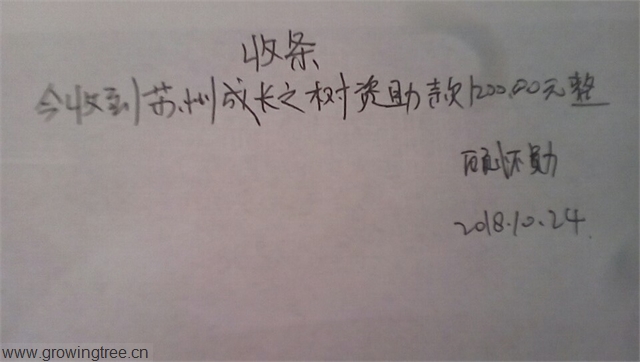 收条
今收到苏州成长之树资助款1200.00元整
怀勋
2018.10.24.
www.growingtree.cn